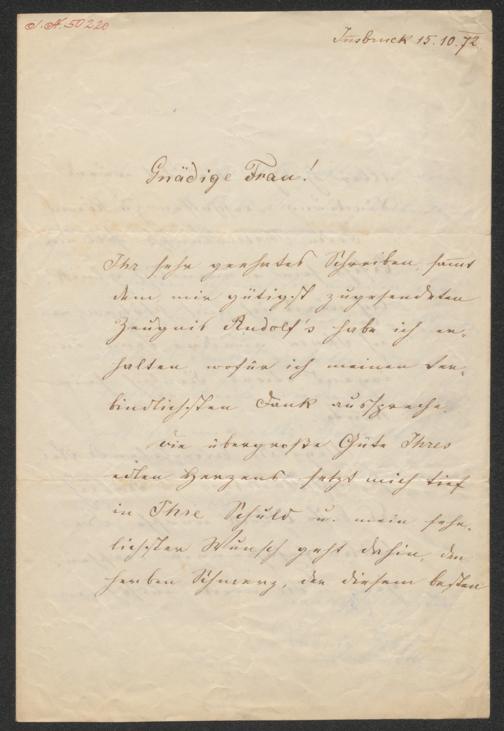 J. N. 50220
Innsbruck 15.10.72
Gnädige Frau!
Ihr sehr geehrtes Schreiben, samt
dem mir gütigst zugesendeten
Zeugnis Rudolf's habe ich er-
halten, wofür ich meinen ver-
bindlichsten Dank ausspreche.
Die übergroße Güte Ihres
edlen Herzens setzt mich tief
in Ihre Schuld u. mein sehn-
lichster Wunsch geht dahin, den
herben Schmerz, der diesem besten